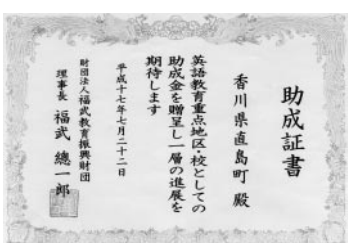 助成証書
香川県直島町 殿
英語教育重点地区・校としての
助成金を贈呈し一層の進展を
期待します
平成十七年七月二十二日
財団法人福武教育振興財団
理事長 福武 總一郎